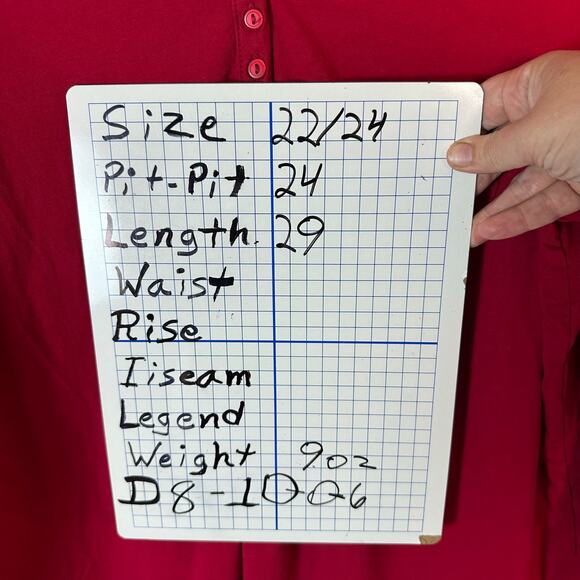 Size 22/24
Pit-Pit 24
Length. 29
Waist
Rise
Iiseam
Legend
Weight 9oz
D8-10-0-6